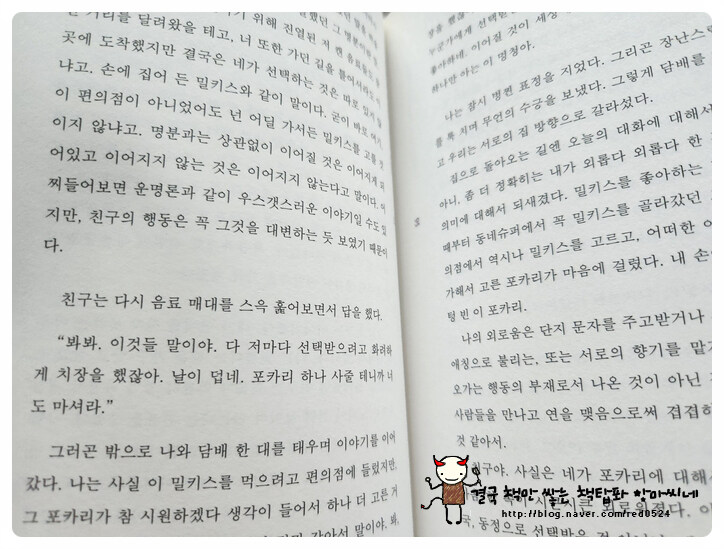 거리를 달려왔을 테고, 너 또한 가던 길을
위해 진열된 저 캔 음료
곳에 도착했지만 결국은 네가 선택하는 것은 따로
냐고. 손에 집어 든 밀키스와 같이 말이다. 굳이 바로
이 편의점이 아니었어도 넌 어딜 가서든 밀키스를 고를
이지 않냐고. 명분과는 상관없이 이어질 것은 이어지게
어있고 이어지지 않는 것은 이어지지 않는다고 말이다.
찌들어보면 운명론과 같이 우스갯스러운 이야기일 수도 있
지만, 친구의 행동은 꼭 그것을 대변하는 듯 보였기 때문이
다.
친구는 다시 음료 매대를 스윽 훑어보면서 답을 했다.
“봐봐. 이것들 말이야. 다 저마다 선택받으려고 화려하
게 치장을 했잖아. 날이 덥네. 포카리 하나 사줄 테니까 너
도 마셔라.”
그러곤 밖으로 나와 담배 한 대를 태우며 이야기를 이어
갔다. 나는 사실 이 밀키스를 먹으려고 편의점에 들렀지만,
그 포카리가 참 시원하겠다 생각이 들어서 하나 더 고른 거
같아서 말이야. 봐,
누군가에게 선택받
좋아하네. 이어질 것이 세상
하나만 하는 이 멍청아.
나는 잠시 벙찐 표정을 지었다. 그리곤 장난스
툭 치며 무언의 수긍을 보냈다. 그렇게 담배를
고 우리는 서로의 집 방향으로 갈라섰다.
집으로 돌아오는 길엔 오늘의 대화에 대해서
아니, 좀 더 정확히는 내가 외롭다 외롭다 한
의미에 대해서 되새겼다. 밀키스를 좋아하는
때부터 동네슈퍼에서 꼭 밀키스를 골라갔던
의점에서 역시나 밀키스를 고르고, 어떠한 이
가해서 고른 포카리가 마음에 걸렸다. 내 손에
텅 빈 이 포카리.
나의 외로움은 단지 문자를 주고받거나
애칭으로 불리는, 또는 서로의 향기를 맡
오가는 행동의 부재로서 나온 것이 아닌
사람들을 만나고 연을 맺음으로써 겹겹
것 같아서.
친구야. 사실은 네가 포카리에 대해
국, 동정으로 선택받은 것
결국 책만 쌓는 책탑파 랑마씨네
http://blog.naver.com/red0524